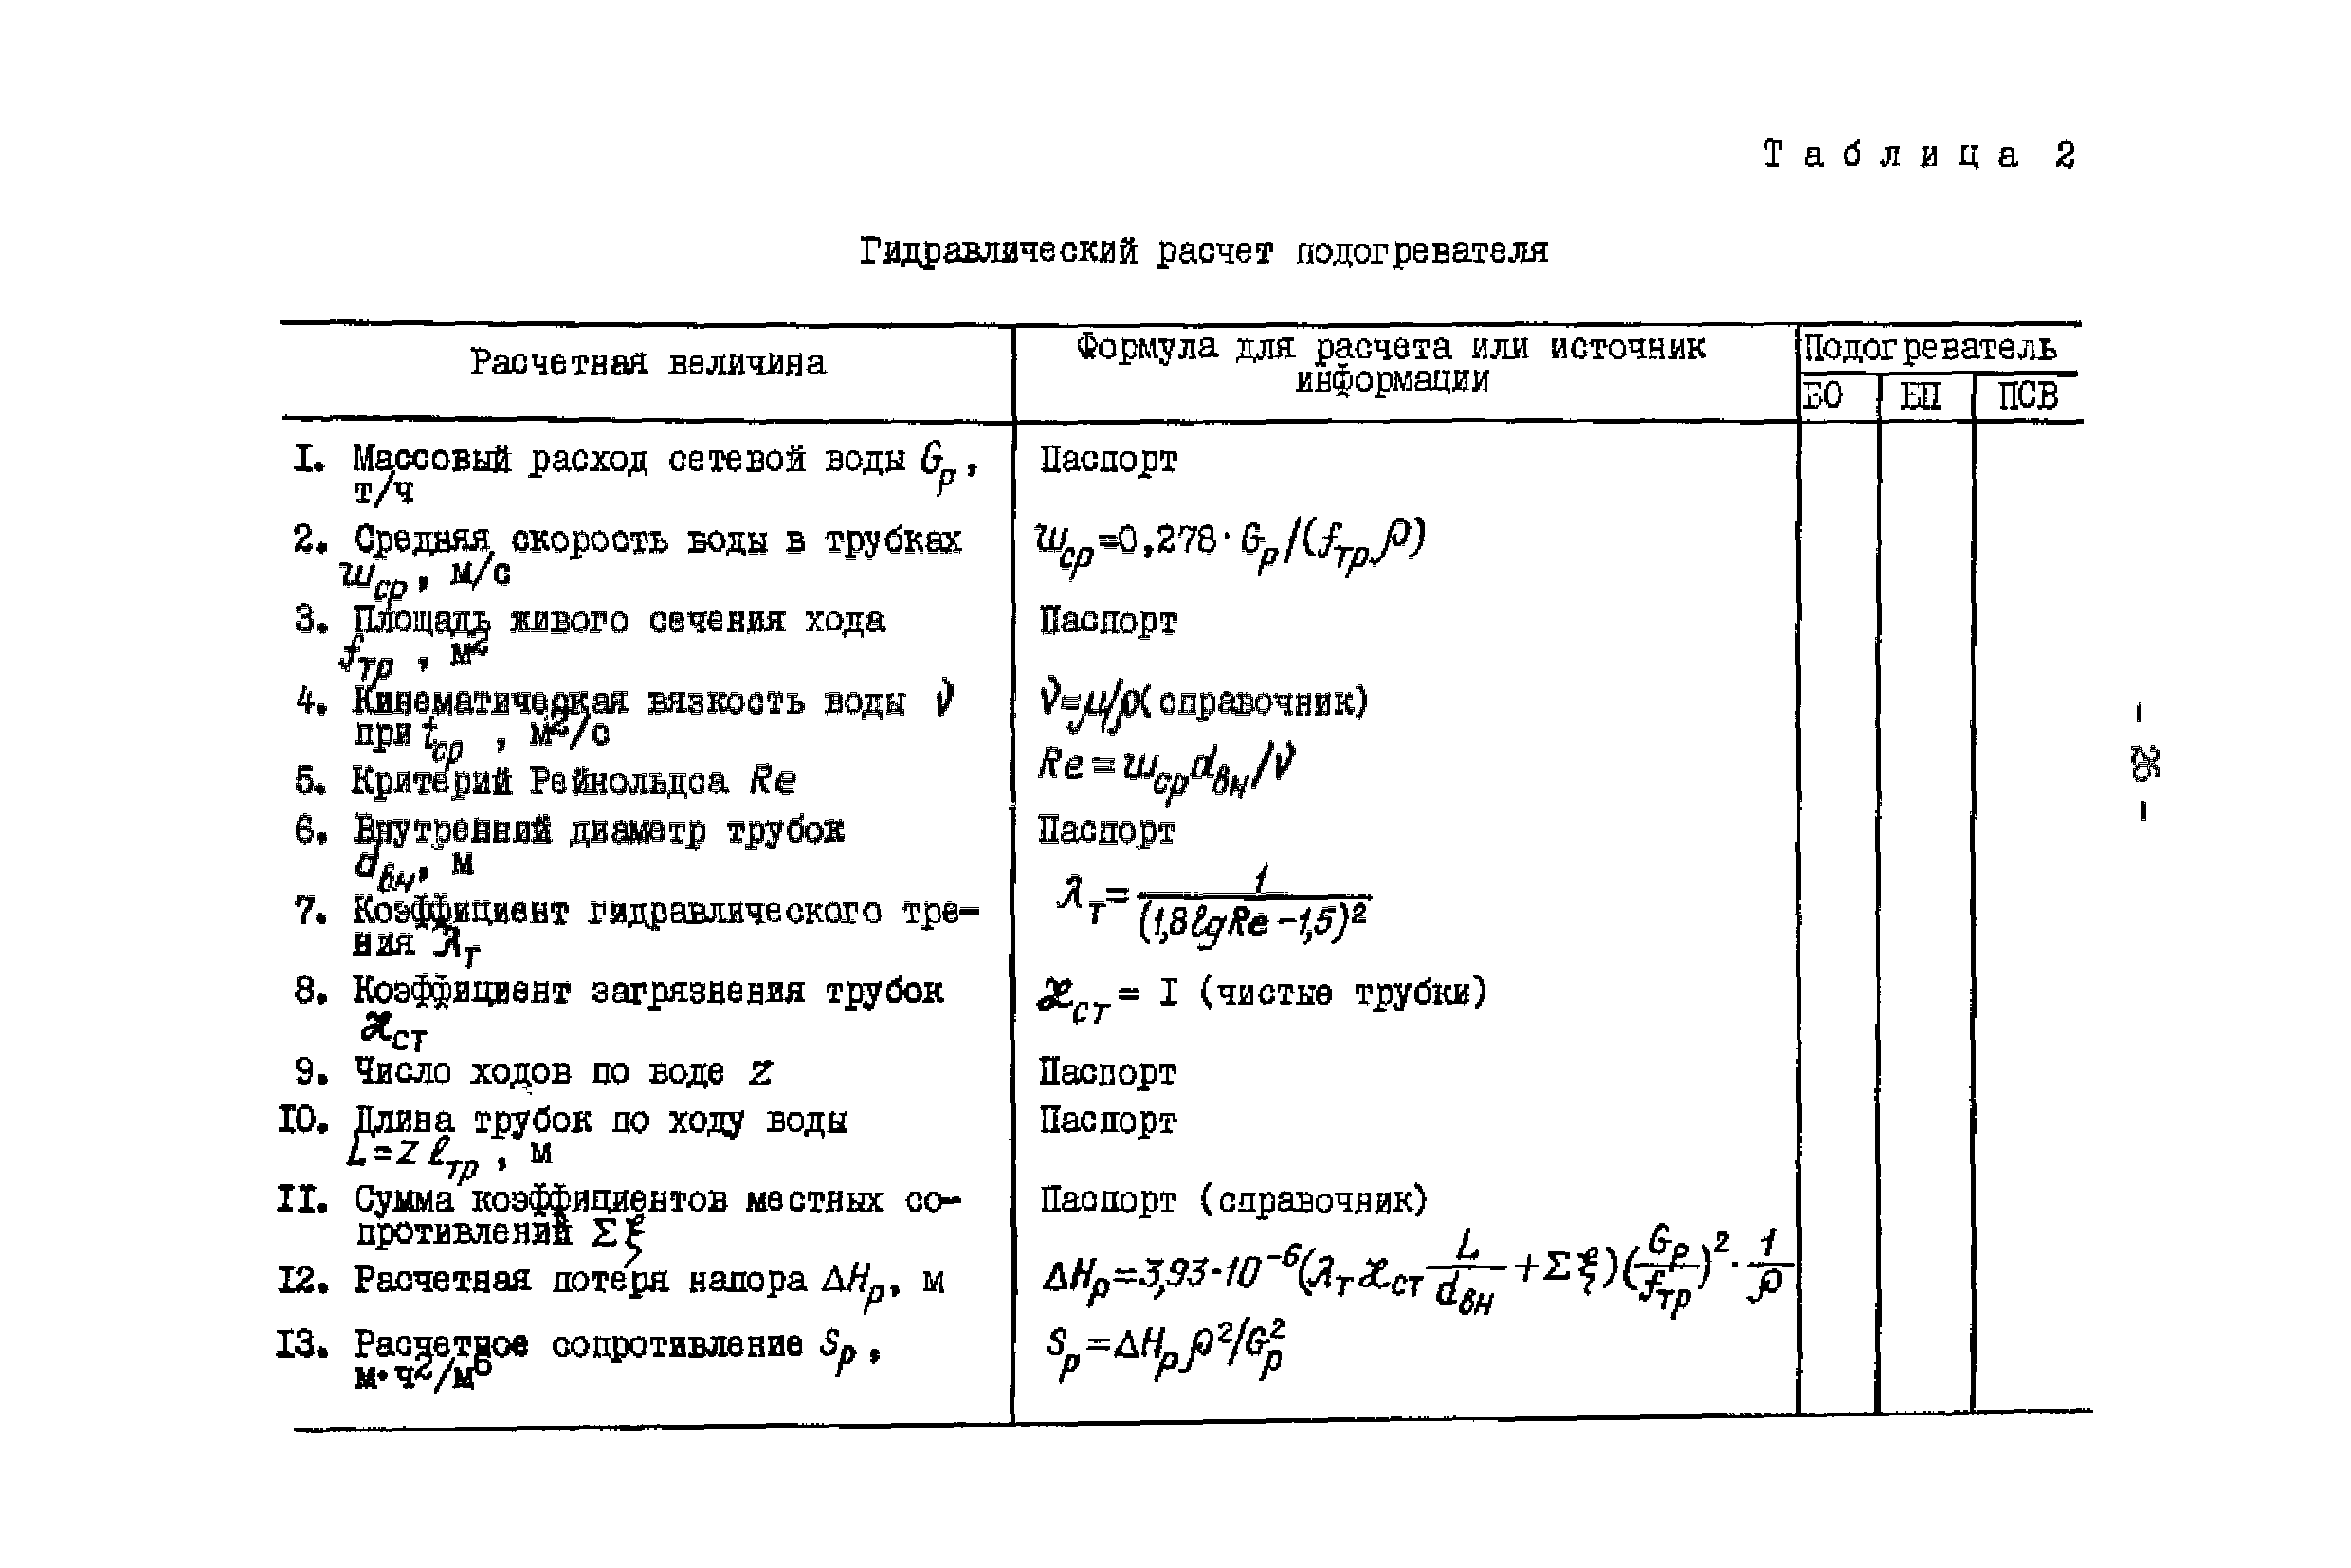 Таблица 2
Гидравлический расчет подогревателя
Расчетная величина
Формула для расчета или источник
информации
Подогреватель
БО БП ПСВ
I. Массовый расход сетевой воды Gр, Паспорт
т/ч
2. Средняя скорость воды в трубках wср=0,278·Gр/(fтрρ)
wср, м/с
3. Площадь живого сечения хода Паспорт
fтр, м²
4. Кинематическая вязкость воды ν ν=μ/ρ(справочник)
при tср, м²/с
5. Критерий Рейнольдса Re Re=wсрdвн/ν
6. Внутренний диаметр трубок Паспорт
dвн, м
7. Коэффициент гидравлического тре- λт=1/(1,8lgRe-1,5)²
ния λт
8. Коэффициент загрязнения трубок æст= I (чистые трубки)
æст
9. Число ходов по воде z Паспорт
I0. Длина трубок по ходу воды Паспорт
L=zℓтр, м
II. Сумма коэффициентов местных со- Паспорт (справочник)
противлений Σξ
I2. Расчетная потеря напора ΔHр, м ΔHр=3,93·10⁻⁶(λт æст L/dвн+Σξ)(Gр/fтр)²·1/ρ
I3. Расчетное сопротивление Sр, Sр=ΔHрρ²/Gр²
м·ч²/м⁶